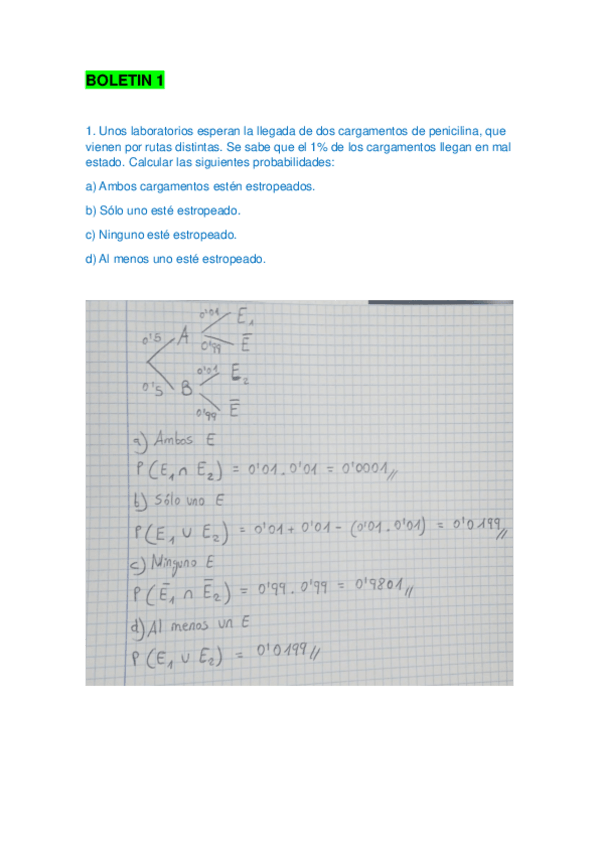 BOLETIN 1
1. Unos laboratorios esperan la llegada de dos cargamentos de penicilina, que
vienen por rutas distintas. Se sabe que el 1% de los cargamentos llegan en mal
estado. Calcular las siguientes probabilidades:
a) Ambos cargamentos estén estropeados.
b) Sólo uno esté estropeado.
c) Ninguno esté estropeado.
d) Al menos uno esté estropeado.
0'01 E₁
0'5 A
0'99 E̅
0'01 E₂
0'5 B
0'99 E̅
a) Ambos E
P(E₁ ∩ E₂) = 0'01 . 0'01 = 0'0001//
b) Sólo uno E
P(E₁ ∪ E₂) = 0'01 + 0'01 - (0'01 . 0'01) = 0'0199//
c) Ninguno E
P(E̅₁ ∩ E̅₂) = 0'99 . 0'99 = 0'9801//
d) Al menos un E
P(E₁ ∪ E₂) = 0'0199//